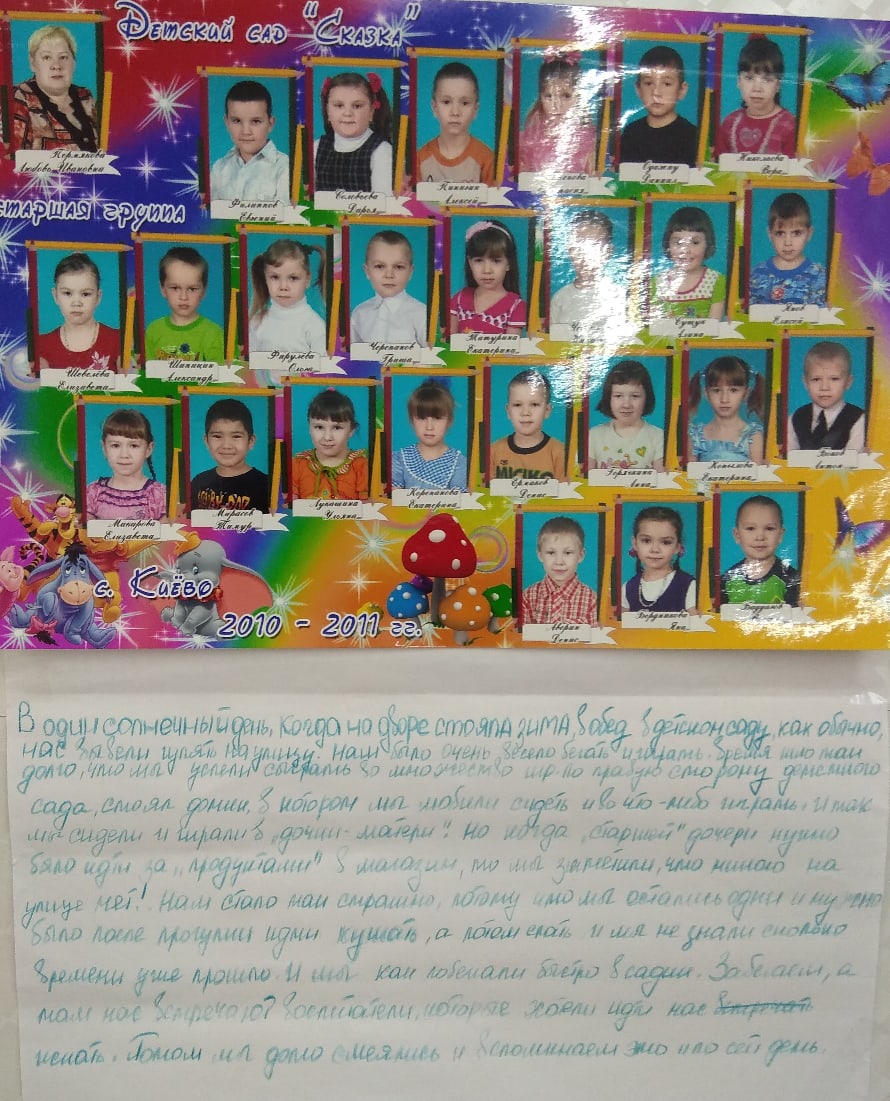 Детский сад "Сказка"
Пермякова
Любовь Ивановна
старшая группа
Филиппов
Евгений
Соловьева
Дарья
Алексей
Даниил
Николаева
Вера
Шевелёва
Елизавета
Шишкин
Александр
Фирулёва
Ольга
Черепанов
Гриша
Татурина
Екатерина
Сутук
Алина
Янов
Елисей
Макарова
Елизавета
Мирасов
Тимур
Лукашина
Ульяна
Корепанова
Екатерина
Ермаков
Денис
Горянкина
Яна
Копылова
Екатерина
Антон
Аверин
Денис
Бердникова
Яна
с. Киёво
2010 - 2011 гг.
В один солнечный день, когда на дворе стояла зима, в обед в детском саду, как обычно,
нас завели гулять на улицу. Нам было очень весело бегать и играть. Время шло так
долго, что мы успели сыграть во множество игр. По правую сторону детского
сада, стоял домик, в котором мы любили сидеть и во что-либо играть. И так
мы сидели и играли в "дочки-матери". Но когда "старшей" дочери нужно
было идти за "продуктами" в магазин, то мы заметили, что никого на
улице нет! Нам стало так страшно, потому что мы остались одни и нужно
было после прогулки идти кушать, а потом спать и мы не знали сколько
времени уже прошло. И мы как побежали быстро в садик. Забегаем, а
там нас встречают воспитатели, которые хотели идти нас встречать
искать. Потом мы долго смеялись и вспоминаем это и по сей день.